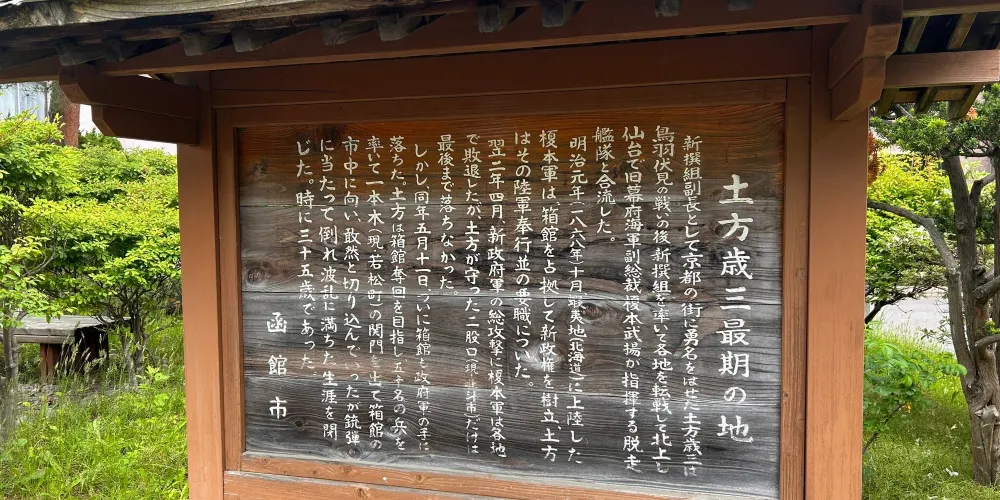 土方歳三最期の地
新撰組副長として京都の街に勇名をはせた土方歳三は
鳥羽伏見の戦いの後新撰組を率いて各地を転戦して北上し
仙台で旧幕府海軍副総裁榎本武揚が指揮する脱走
艦隊と合流した。
明治元年(一八六八年)十月蝦夷地(北海道)に上陸した
榎本軍は、箱館を占拠して新政権を樹立、土方
はその陸軍奉行並の要職についた。
翌二年四月、新政府軍の総攻撃に榎本軍は各地
で敗退したが、土方が守った二股口(現・北斗市)だけは
最後まで落ちなかった。
しかし、同年五月十一日、ついに箱館も政府軍の手に
落ちた。土方は箱館奪回を目指し、五十名の兵を
率いて一本木(現・若松町)の関門を出て箱館の
市中に向い、敢然と切り込んでいったが銃弾
に当たって倒れ、波乱に満ちた生涯を閉
じた。時に三十五歳であった。
函館市